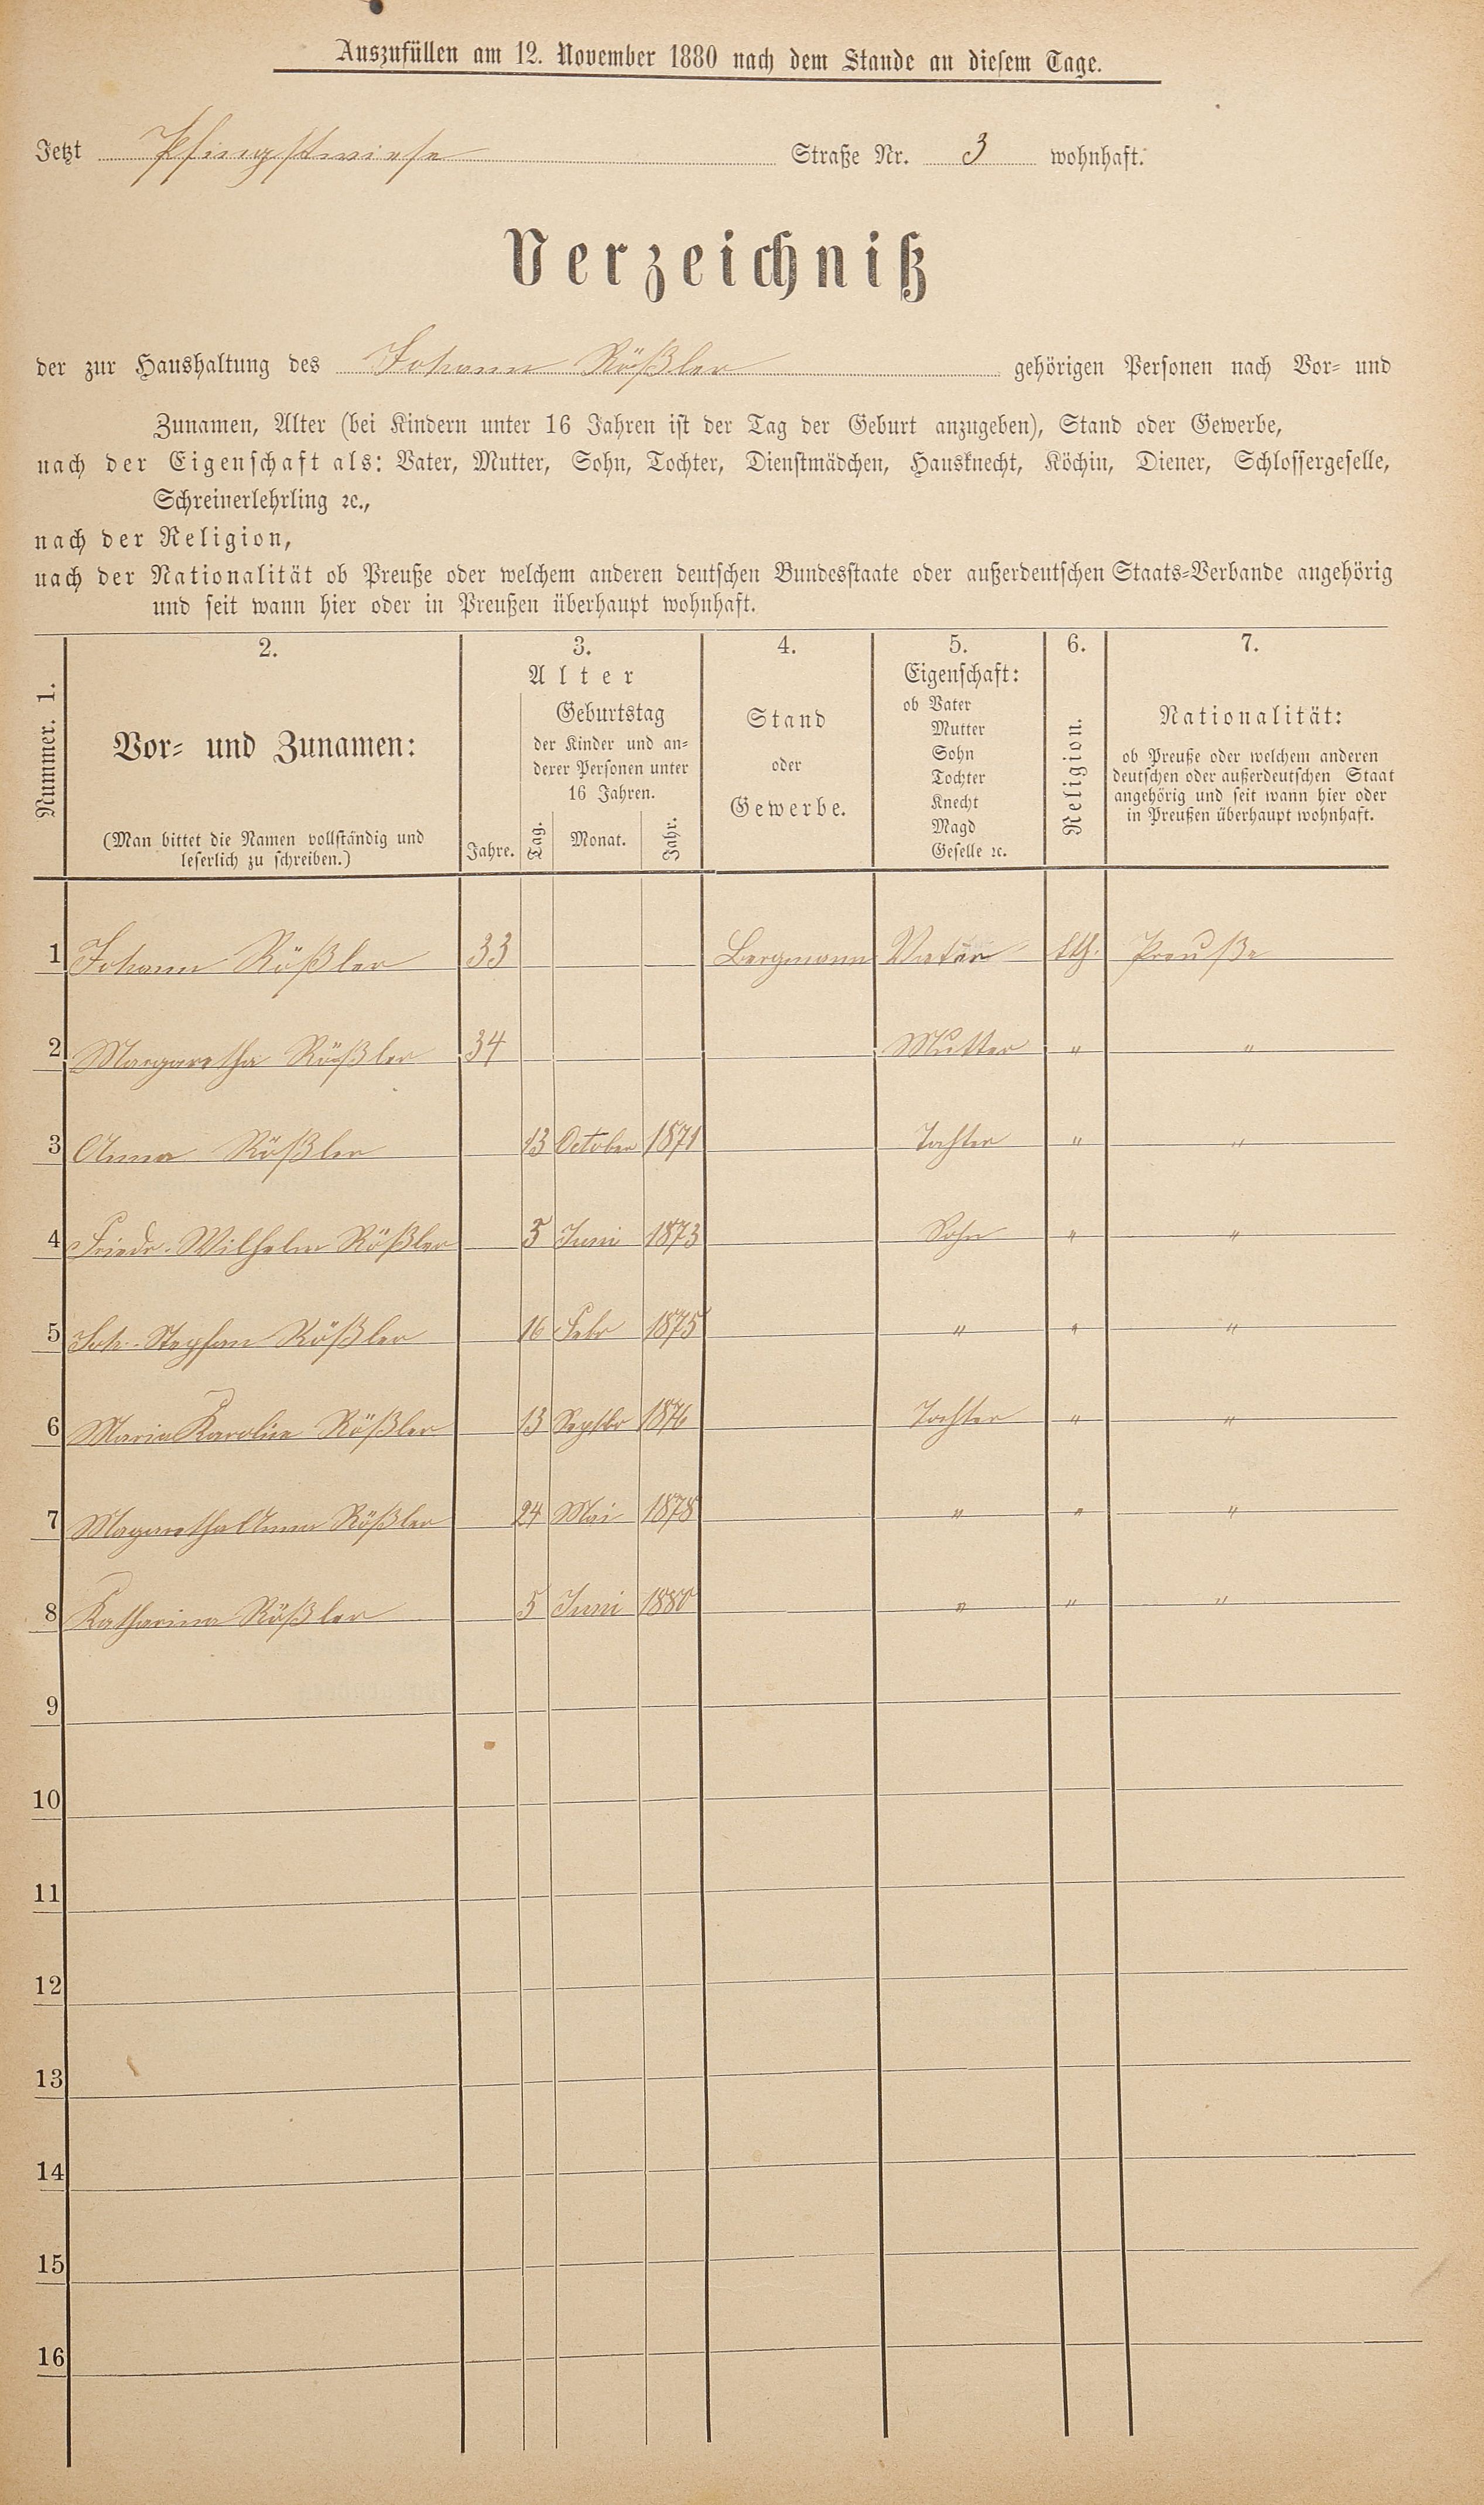 Auszufüllen am 12. November 1880 nach dem Stande an diesem Tage.
Jetzt Pfingstwiese Straße Nr. 3 wohnhaft.
Verzeichniß
der zur Haushaltung des Johann Rößler gehörigen Personen nach Vor- und
Zunamen, Alter (bei Kindern unter 16 Jahren ist der Tag der Geburt anzugeben), Stand oder Gewerbe,
nach der Eigenschaft als: Vater, Mutter, Sohn, Tochter, Dienstmädchen, Hausknecht, Köchin, Diener, Schlossergeselle,
Schreinerlehrling ꝛc.,
nach der Religion,
nach der Nationalität ob Preuße oder welchem anderen deutschen Bundesstaate oder außerdeutschen Staats-Verbande angehörig
und seit wann hier oder in Preußen überhaupt wohnhaft.
Nummer. 1.
2.
Vor- und Zunamen:
(Man bittet die Namen vollständig und
leserlich zu schreiben.)
3.
Alter
Jahre.
Geburtstag
der Kinder und an-
derer Personen unter
16 Jahren.
Tag. Monat. Jahr.
4.
Stand
oder
Gewerbe.
5.
Eigenschaft:
ob Vater
Mutter
Sohn
Tochter
Knecht
Magd
Geselle ꝛc.
6.
Religion.
7.
Nationalität:
ob Preuße oder welchem anderen
deutschen oder außerdeutschen Staat
angehörig und seit wann hier oder
in Preußen überhaupt wohnhaft.
1 Johann Rößler 33 Bergmann Vater kth. Preuße
2 Margaretha Rößler 34 Mutter " "
3 Anna Rößler 13 October 1871 Tochter " "
4 Friedr. Wilhelm Rößler 5 Juni 1873 Sohn " "
5 Joh. Stephan Rößler 16 Febr 1875 " " "
6 Maria Karolina Rößler 13 Septbr 1876 Tochter " "
7 Magaretha Anna Rößler 24 Mai 1878 " " "
8 Katharina Rößler 5 Juni 1880 " " "
9
10
11
12
13
14
15
16